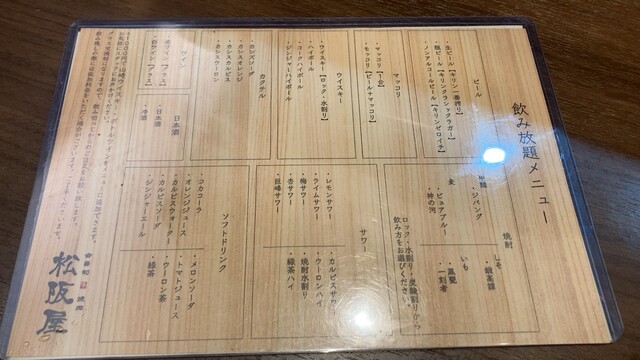 飲み放題メニュー
ビール
・生ビール【キリン一番搾り】
・瓶ビール【キリンクラシックラガー】
・ノンアルコールビール【キリンゼロイチ】
マッコリ
・マッコリ【1合】
・モッコリ【ビール+マッコリ】
ウイスキー
・ウイスキー【ロック・水割り】
・ハイボール
・コークハイボール
・ジンジャーハイボール
カクテル
・カシスソーダ
・カシスオレンジ
・カシスカルピス
・カシスウーロン
ワイン
・赤ワイン【グラス】
・白ワイン【グラス】
日本酒
・日本酒
・冷酒
焼酎
・ジパング
麦
・ピュアブルー
・神の河
しそ
・鍛高譚
いも
・黒甕
・一刻者
ロック・水割り・炭酸割りから
飲み方をお選びください。
サワー
・レモンサワー
・ライムサワー
・梅サワー
・杏サワー
・巨峰サワー
・カルピスサワー
・ウーロンハイ
・焼酎水割り
・緑茶ハイ
ソフトドリンク
・コカコーラ
・オレンジジュース
・カルピスウォーター
・カルピスソーダ
・ジンジャーエール
・メロンソーダ
・トマトジュース
・ウーロン茶
・緑茶
松阪屋